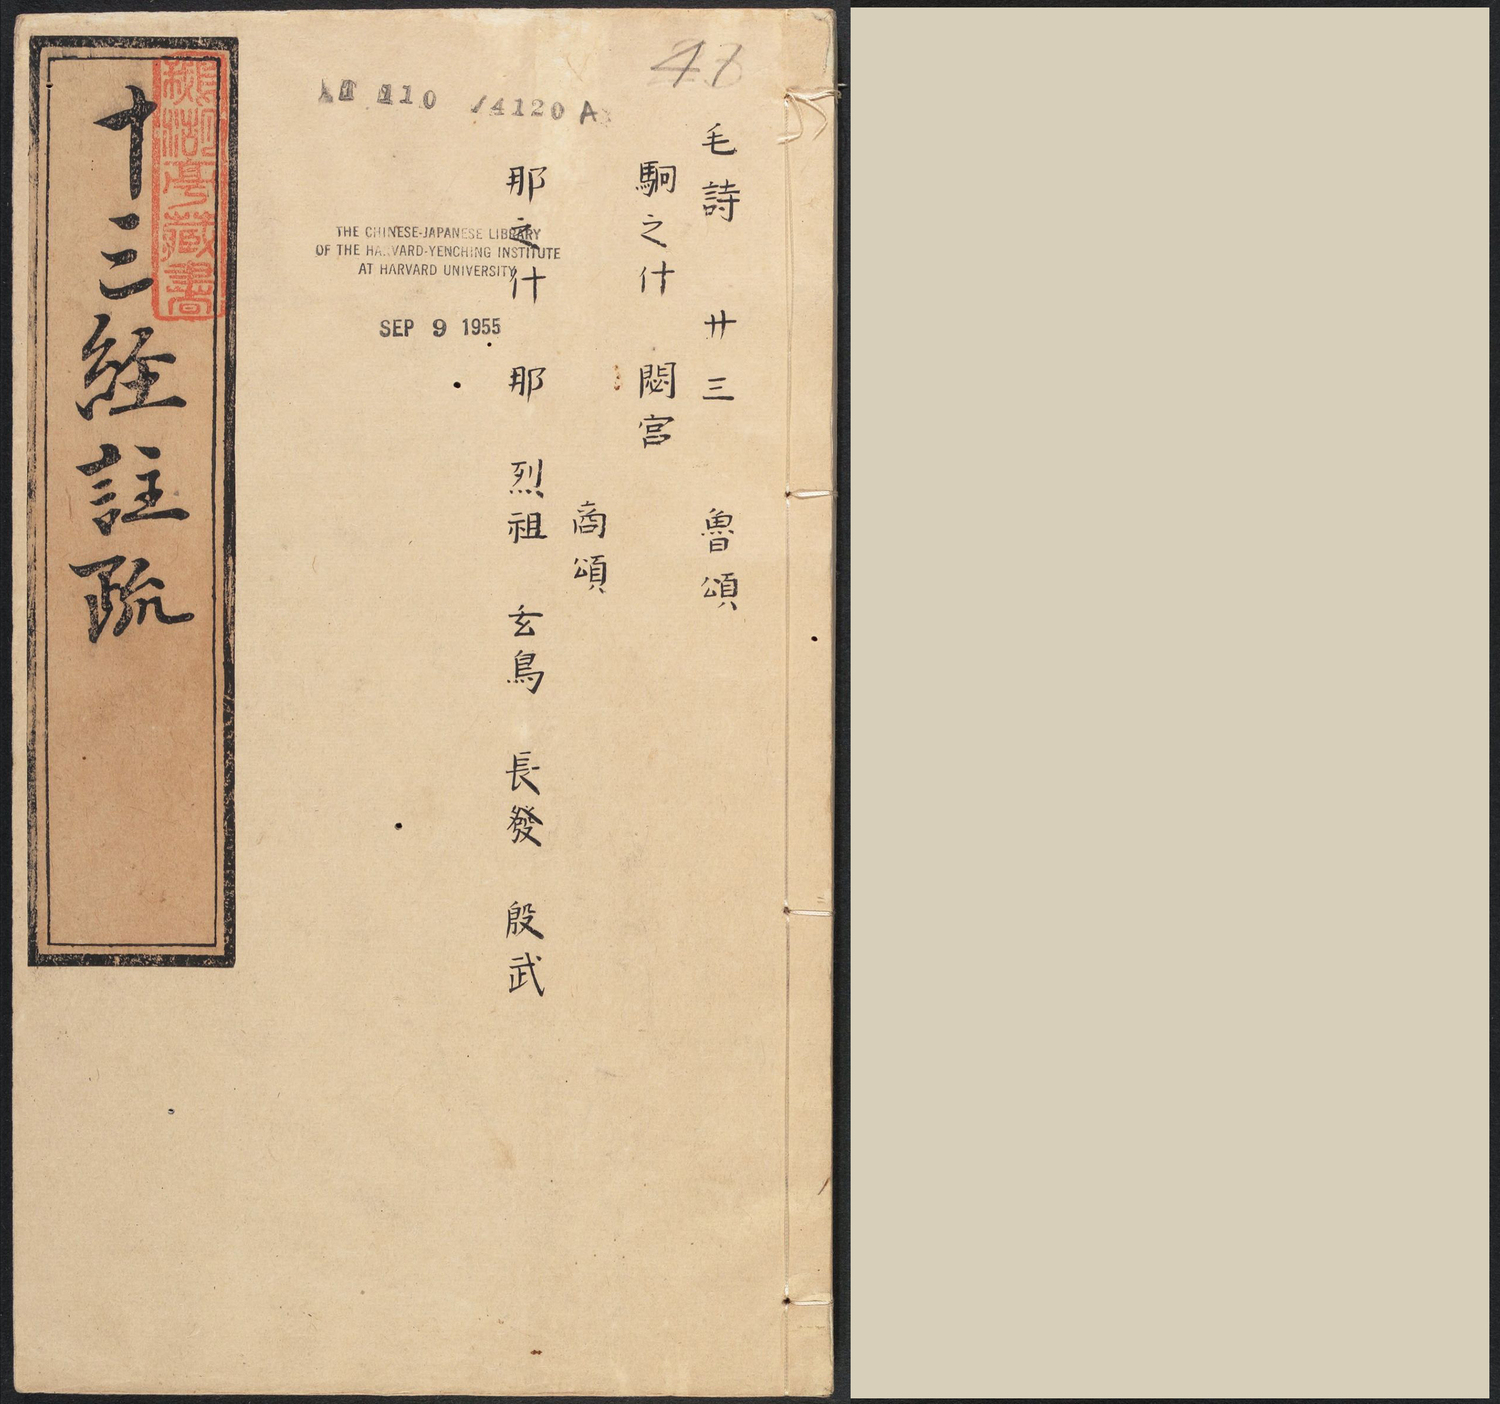 48
毛詩 廿三 魯頌
駉之什 閟宮
商頌
那之什 那 烈祖 玄鳥 長發 殷武
110 /4120 A
THE CHINESE-JAPANESE LIBRARY
OF THE HARVARD-YENCHING INSTITUTE
AT HARVARD UNIVERSITY
SEP 9 1955
十三経註疏
亭藏書